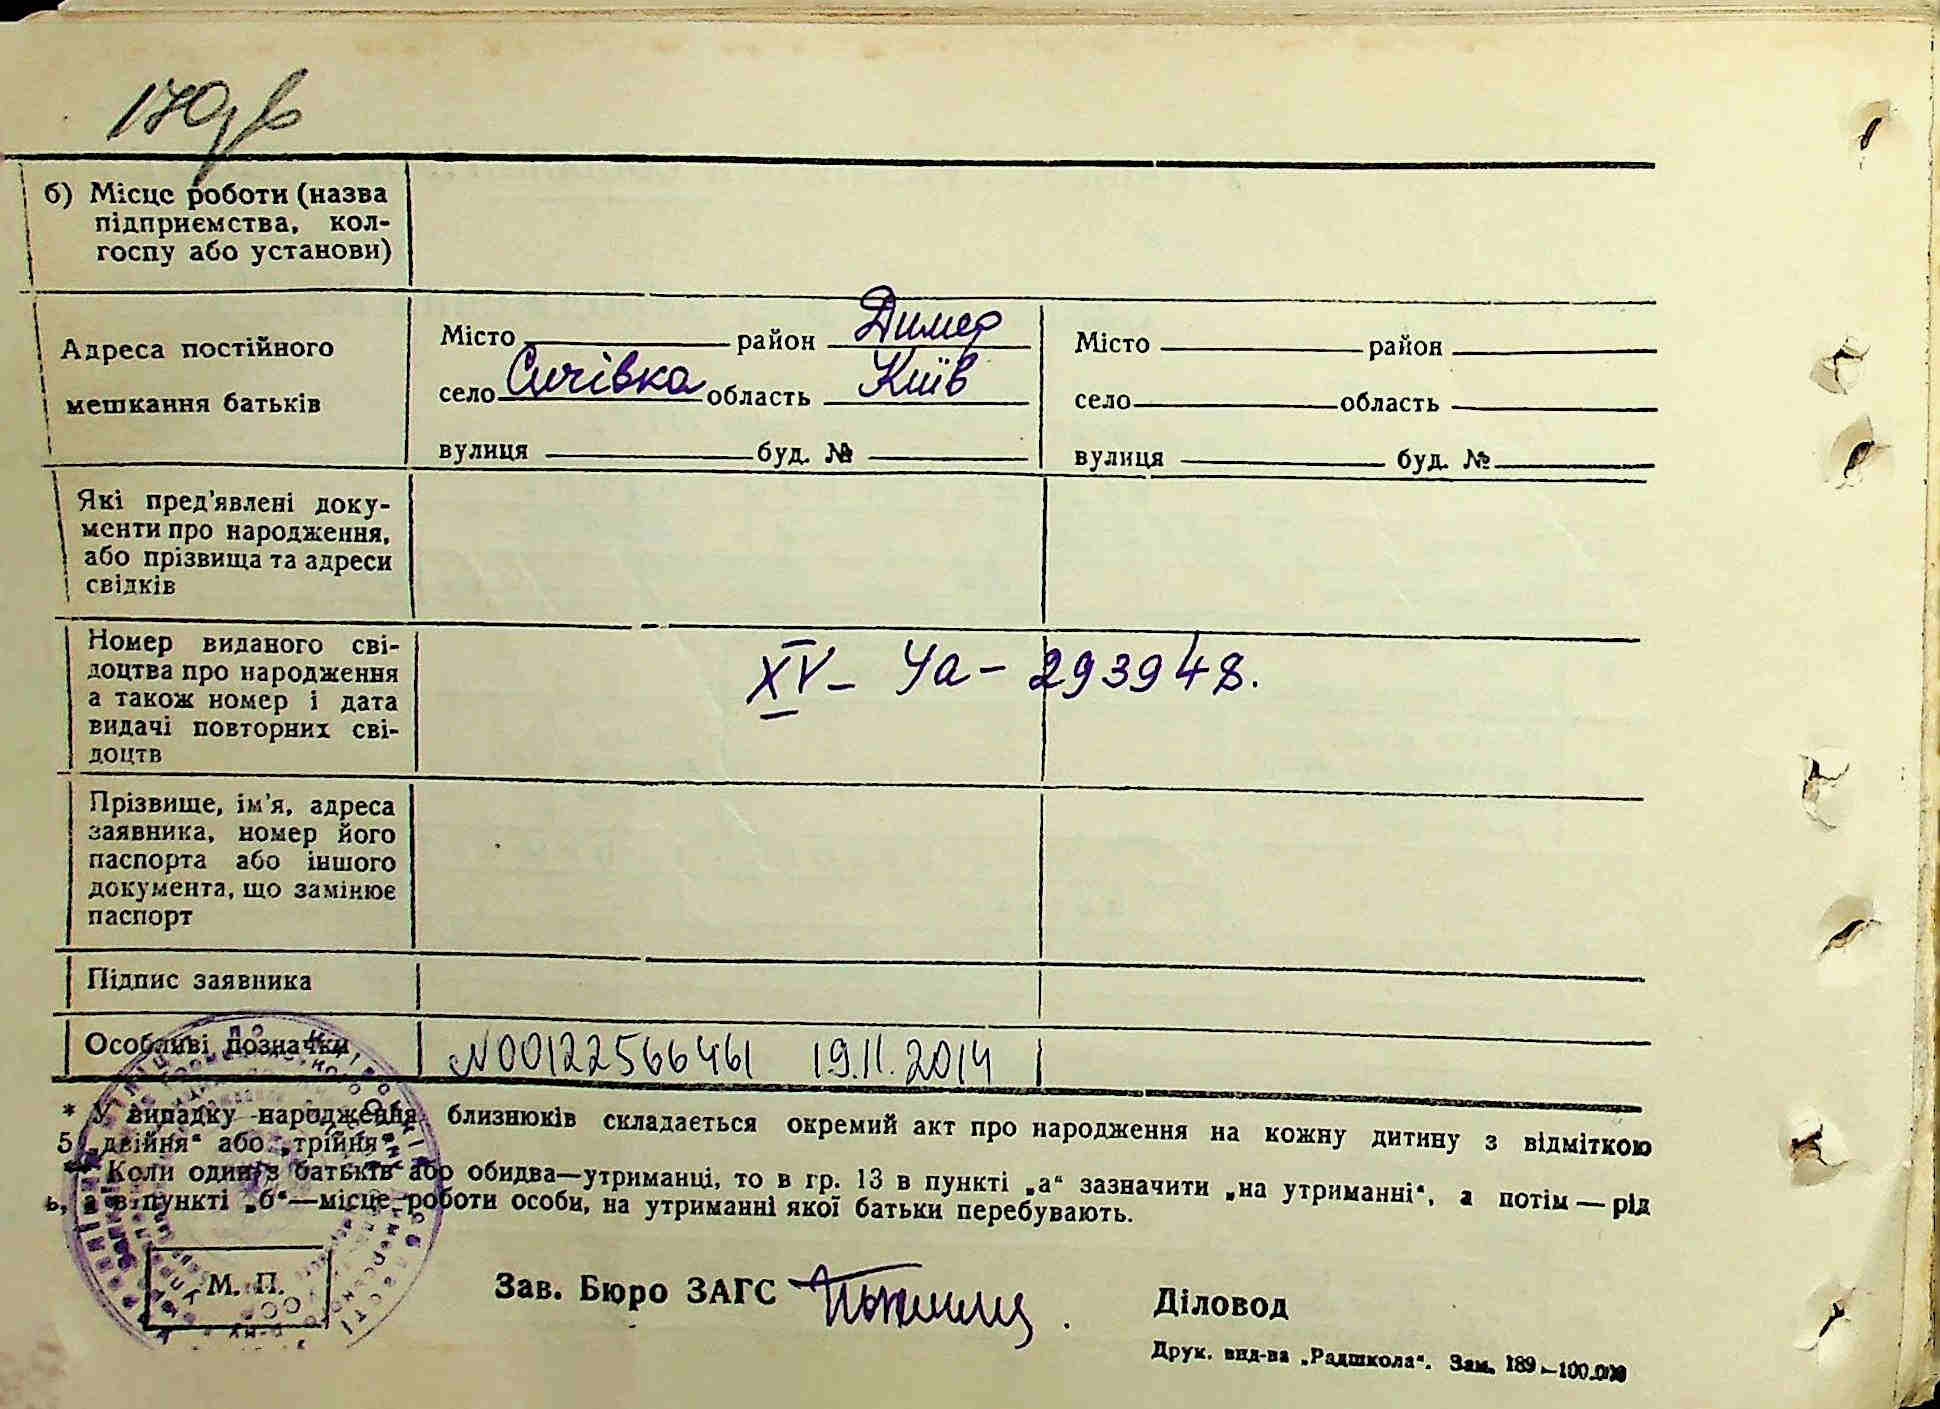 б) Місце роботи (назва
підприємства, кол-
госпу або установи)
Адреса постійного
мешкання батьків
Місто район Димер
село Сичівка область Київ
вулиця буд. №
Місто район
село область
вулиця буд. №
Які пред'явлені доку-
менти про народження,
або прізвища та адреси
свідків
Номер виданого сві-
доцтва про народження
а також номер і дата
видачі повторних сві-
доцтв
XV – Ча – 293948.
Прізвище, ім'я, адреса
заявника, номер його
паспорта або іншого
документа, що замінює
паспорт
Підпис заявника
Особливі позначки
N00122566461 19.11.2014
* У випадку народження близнюків складається окремий акт про народження на кожну дитину з відміткою
„двійня" або „трійня"
** Коли один з батьків або обидва—утриманці, то в гр. 13 в пункті „а" зазначити „на утриманні", а потім — рід
ь, а в пункті „б"—місце роботи особи, на утриманні якої батьки перебувають.
М. П.
Зав. Бюро ЗАГС
Діловод
Друк. вид-ва „Радшкола". Зам. 189—100.000